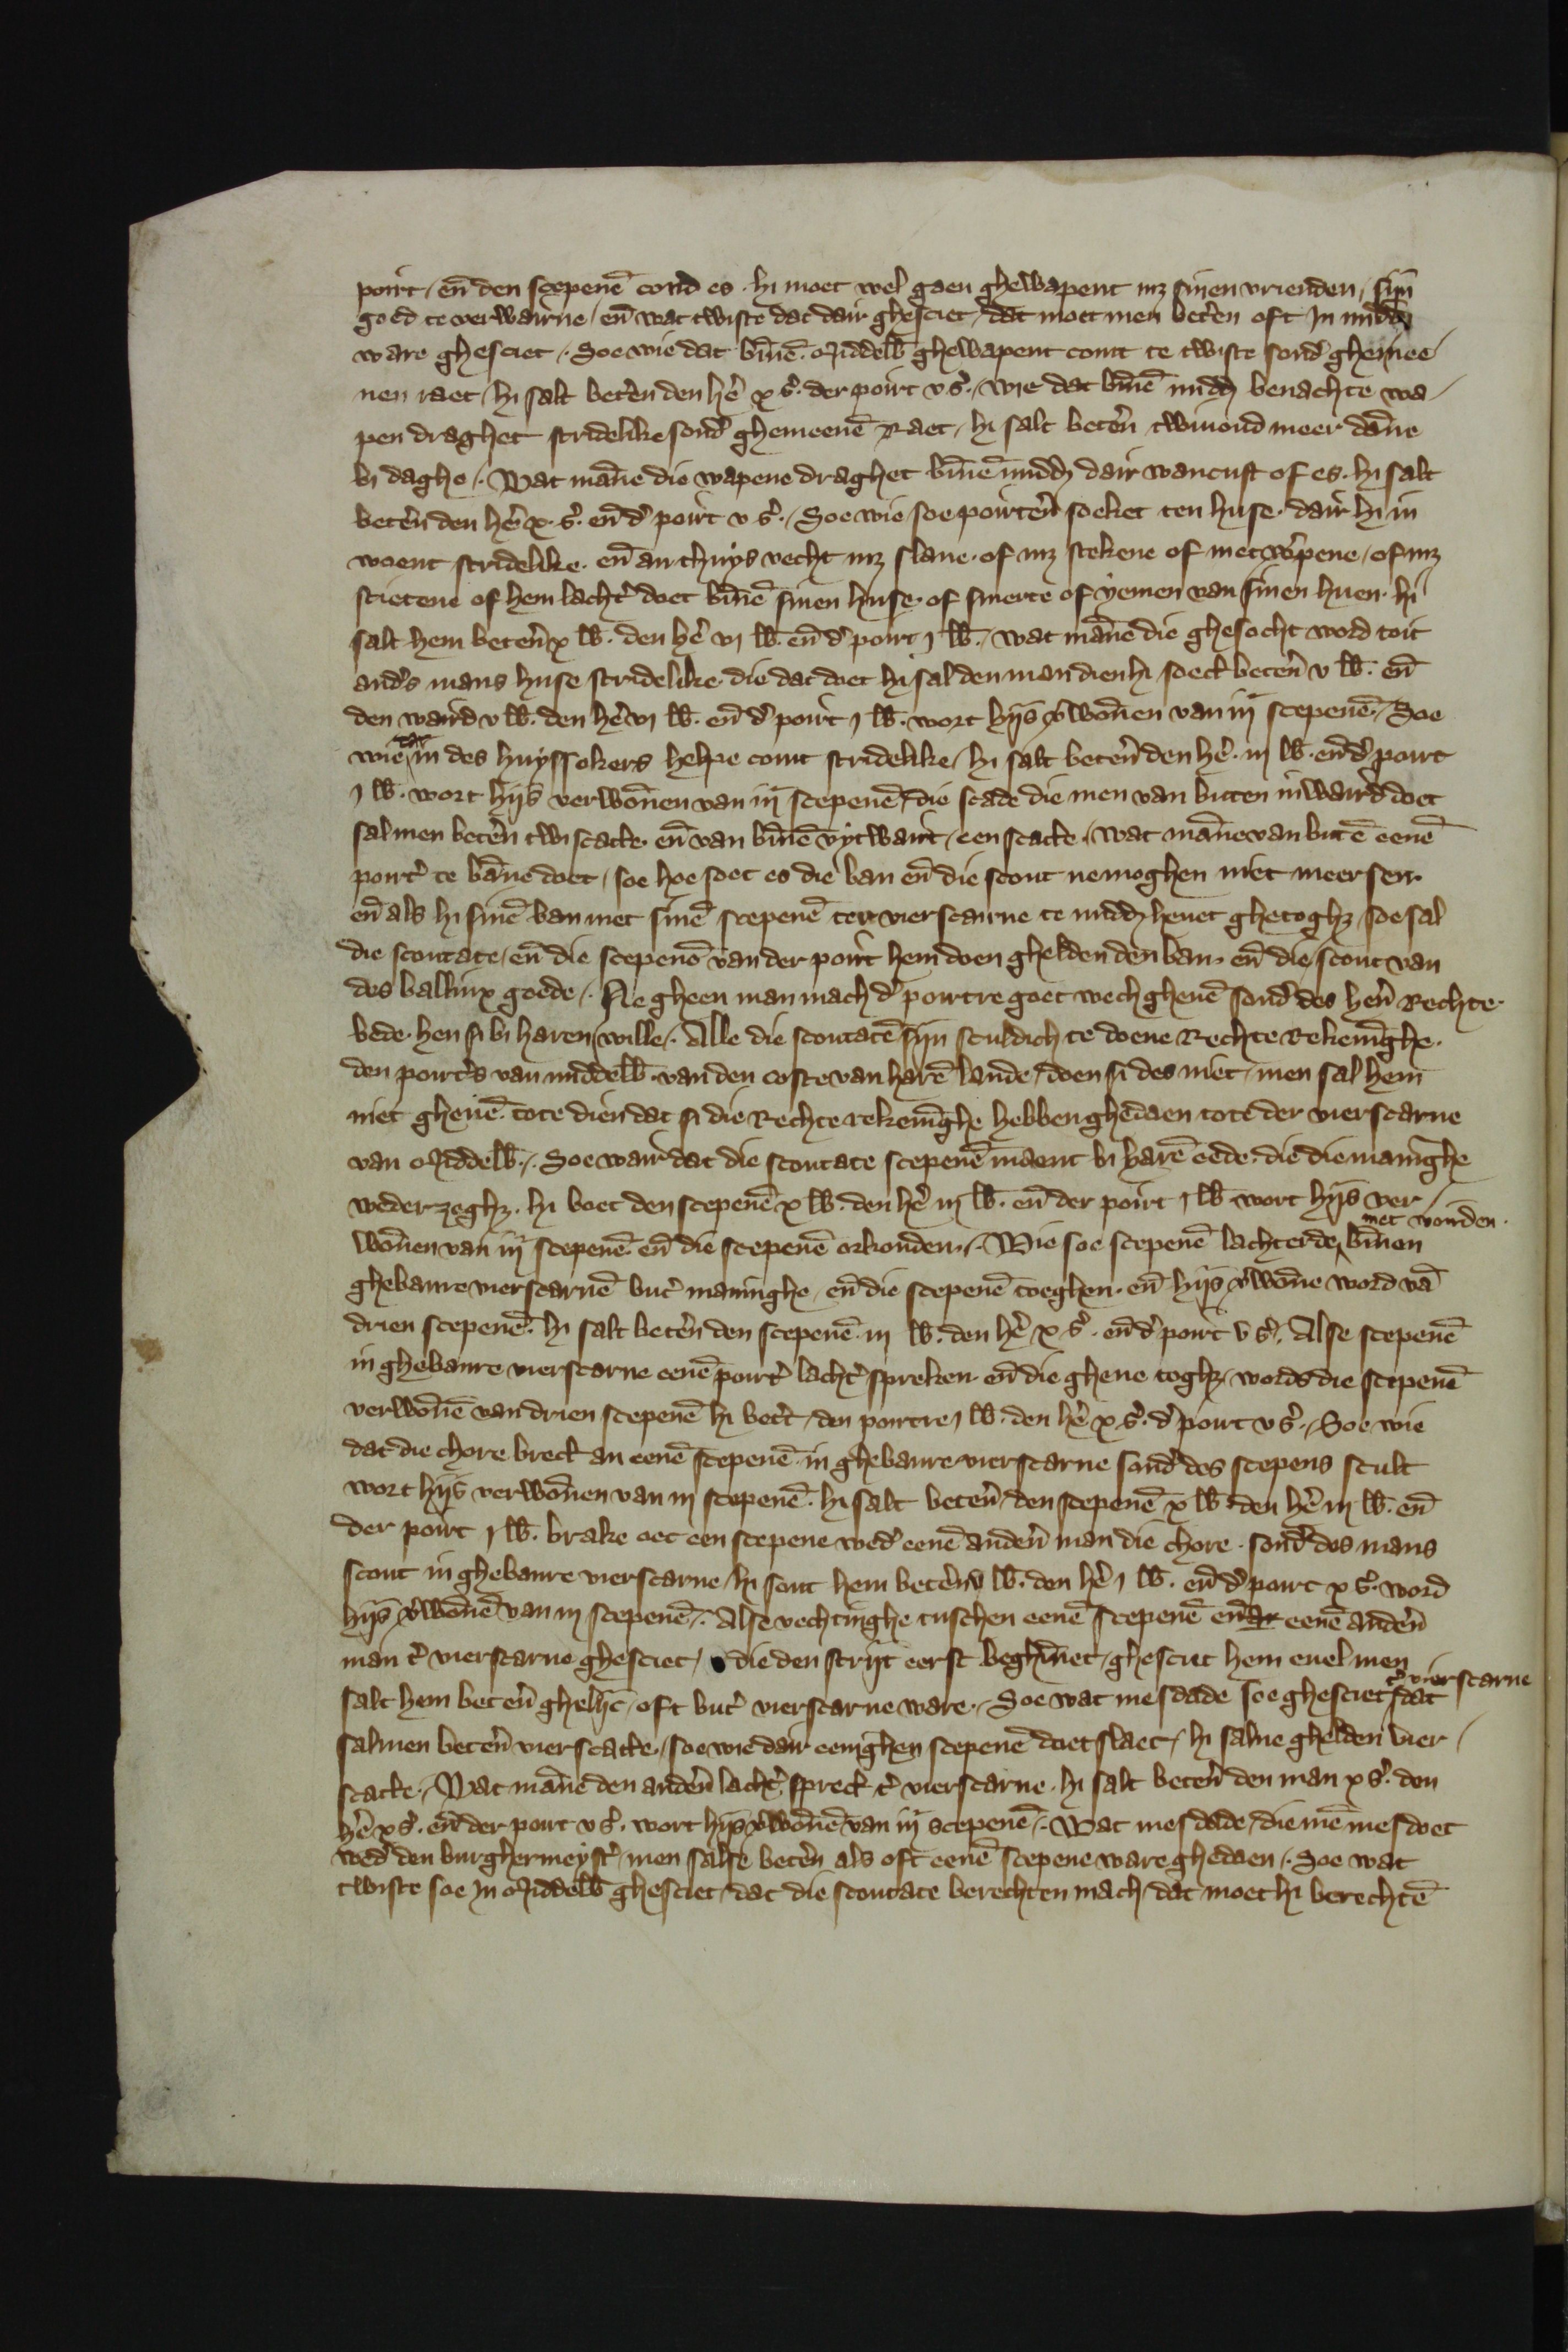 poirt / en̄ den scepenē cond es · hi moet wel gaen ghewapent mʒ sinen vrienden / sijn
goed te verwairne / en̄ wat twiste dat dair ghesciet / dat moet men betʼen oft In midd
ware ghesciet /· Soe wie dat bīnē Middelb̄ ghewapent comt te twiste sondʼ ghemee
nen raet / hi salt betʼen den hʼe x sʼ· der poirt v sʼ· / wie dat bīnē midd benachte wa /
pen draghet stridelike sondʼ ghemeenē Raet / hi salt betʼen twiuoud meer dāne
bi daghe /· Wat māne die wapene draghet bīnē midd dair wancust of es · hi salt
betʼen den hʼe x · sʼ· en̄ dʼ poirt v sʼ· / Soe wie soe poirtʼen soeket ten huse · dair hi in
woent stridelike · en̄ an thuys vecht mʒ slane · of mʒ stekene of met wʼpene / of mʒ
scietene of hem lachtʼ doet bīnē sinen huse · of smerte of yemen van sinen huen · hi
salt hem betʼen x lb̄ · den hʼe vj lb̄ · en̄ dʼ poirt j lb̄ · / wat māne die ghesocht word toit
andʼs mans huse stridelike · die dat doet hi sal den man dien hi soeck betʼen v lb̄ · en̄
den waird v lb̄ · den hʼe vj lb̄ · en̄ dʼ poirt j lb̄ · wort hijs vʼwōnen van iij scepenē · / Soe
wie in des huyssokers helpe comt stridelike / hi salt betʼen den hʼe · iij lb̄ · en̄ dʼ poirt
j lb̄ · wort hijs verwōnen van iij scepenē / die scade die men van buten inwaird doet
salmen betʼen twiscatte · en̄ van bīnē vytwairt / een scatte / wat māne van butē eenē
poirtʼ te bāne doet / soe hoe soet es die ban en̄ die scout ne moghen niet meer sen ·
en̄ als hi sinē ban met sinē scepenē ter vierscairne te midd heuet ghetoghʒ / soe sal
die scoutate / en̄ die scepenē van der poirt hem doen ghelden den ban · en̄ die scout van
des ballinx goede /· Ne gheen man mach dʼ poirtre goet wech gheuē sondʼ des hʼen Rechte ·
bede · hen si bi haren wille /· Alle die scoutatē sijn sculdich te doene Rechte Rekenīghe ·
den poirtʼs van middelb̄ · van den coste van harē lande / doen si des niet / men sal hem
niet gheuē · tote dien dat si die Rechte rekenīghe hebben ghedaen tote der vierscarne
van Middelb̄ · /· Soe wair dat die scoutate scepenē maent bi harē eede · die die maninghe
weder zeghʒ · hi boet den scepenē x lb̄ · den hʼe iij lb̄ · en̄ der poirt j lb̄ wort hijs ver /
wōnen van iij scepenē · en̄ die scepenē orkonden · /· Wie soe scepenē lachterde met woirden · bīnen
ghebanre vierscarnē butʼ maninghe / en̄ die scepenē toeghen · en̄ hijs vʼwōne word vā
drien scepenē · hi salt betʼen den scepenē · iij lb̄ · den hʼe x sʼ · en̄ dʼ poirt v sʼ · Alse scepenē
in ghebanre vierscarne eenē poirtʼ lachtʼ spreken · en̄ die ghene toghʒ / words die scepenē
verwōnē van drien scepenē hi betʼt / den poirtre j lb̄ · den hʼe x sʼ · dʼ poirt v sʼ · / Soe wie
dat die chore breck an eenē scepenē · in ghebanre vierscarne sondʼ des scepens scult
wort hijs verwōnen van iij scepenē · hi salt betʼen den scepenē x lb̄ · den hʼe iij lb̄ · en̄
der poirt j lb̄ · brake oec een scepene wedʼ eenē andʼen man die chore · sondʼ des mans
scout in ghebanre vierscarne / hi sout hem betʼen v lb̄ · den hʼe j lb̄ · en̄ dʼ poirt x sʼ · word
hijs vʼwōnē van iij scepenē · /· Alse vechtinghe tuschen eenē scepenē en̄ eenē andʼen
man tʼ vierscarne ghesciet / die den strijt eerst beghīnet / ghesciet hem euel men
salt hem betʼen ghelijc / oft butʼ vierscarne ware · / Soe wat mesdade soe ghesciet tʼ vierscarne dat
salmen betʼen vierscatte / soe wie dair eenighen scepene doet slaet / hi salne ghelden vier /
scatte · / Wat māne den andʼen lachtʼ spreck tʼ vierscarne · hi salt betʼen den man x sʼ · den
hʼe x sʼ · en̄ der poirt v sʼ · wort hijs vʼwōnē van iij scepenē · /· Wat mesdade / die mē mesdoet
wedʼ den burghermeystʼ / men salse betʼen als oft eenē scepene ware ghedaen /· Soe wat
twiste soe In Middelb̄ ghesciet / dat die scoutate berechten mach / dat moet hi berechtē